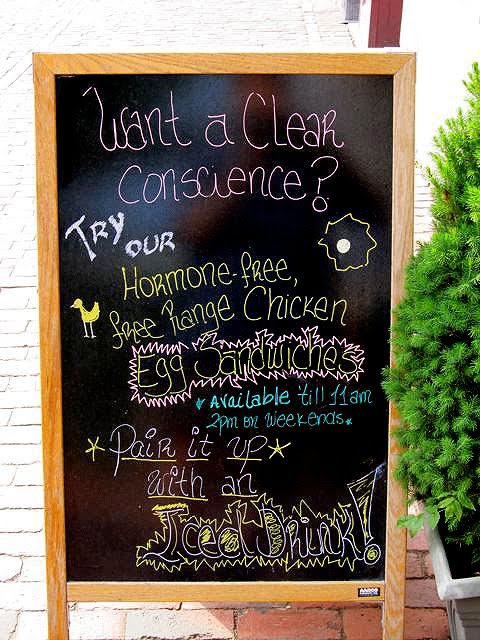 Want a Clear
Conscience?
Try our
Hormone-free,
free Range Chicken
Egg Sandwiches
* Available 'till 11am
2pm on weekends *
* Pair it up *
with an
Iced Drink!